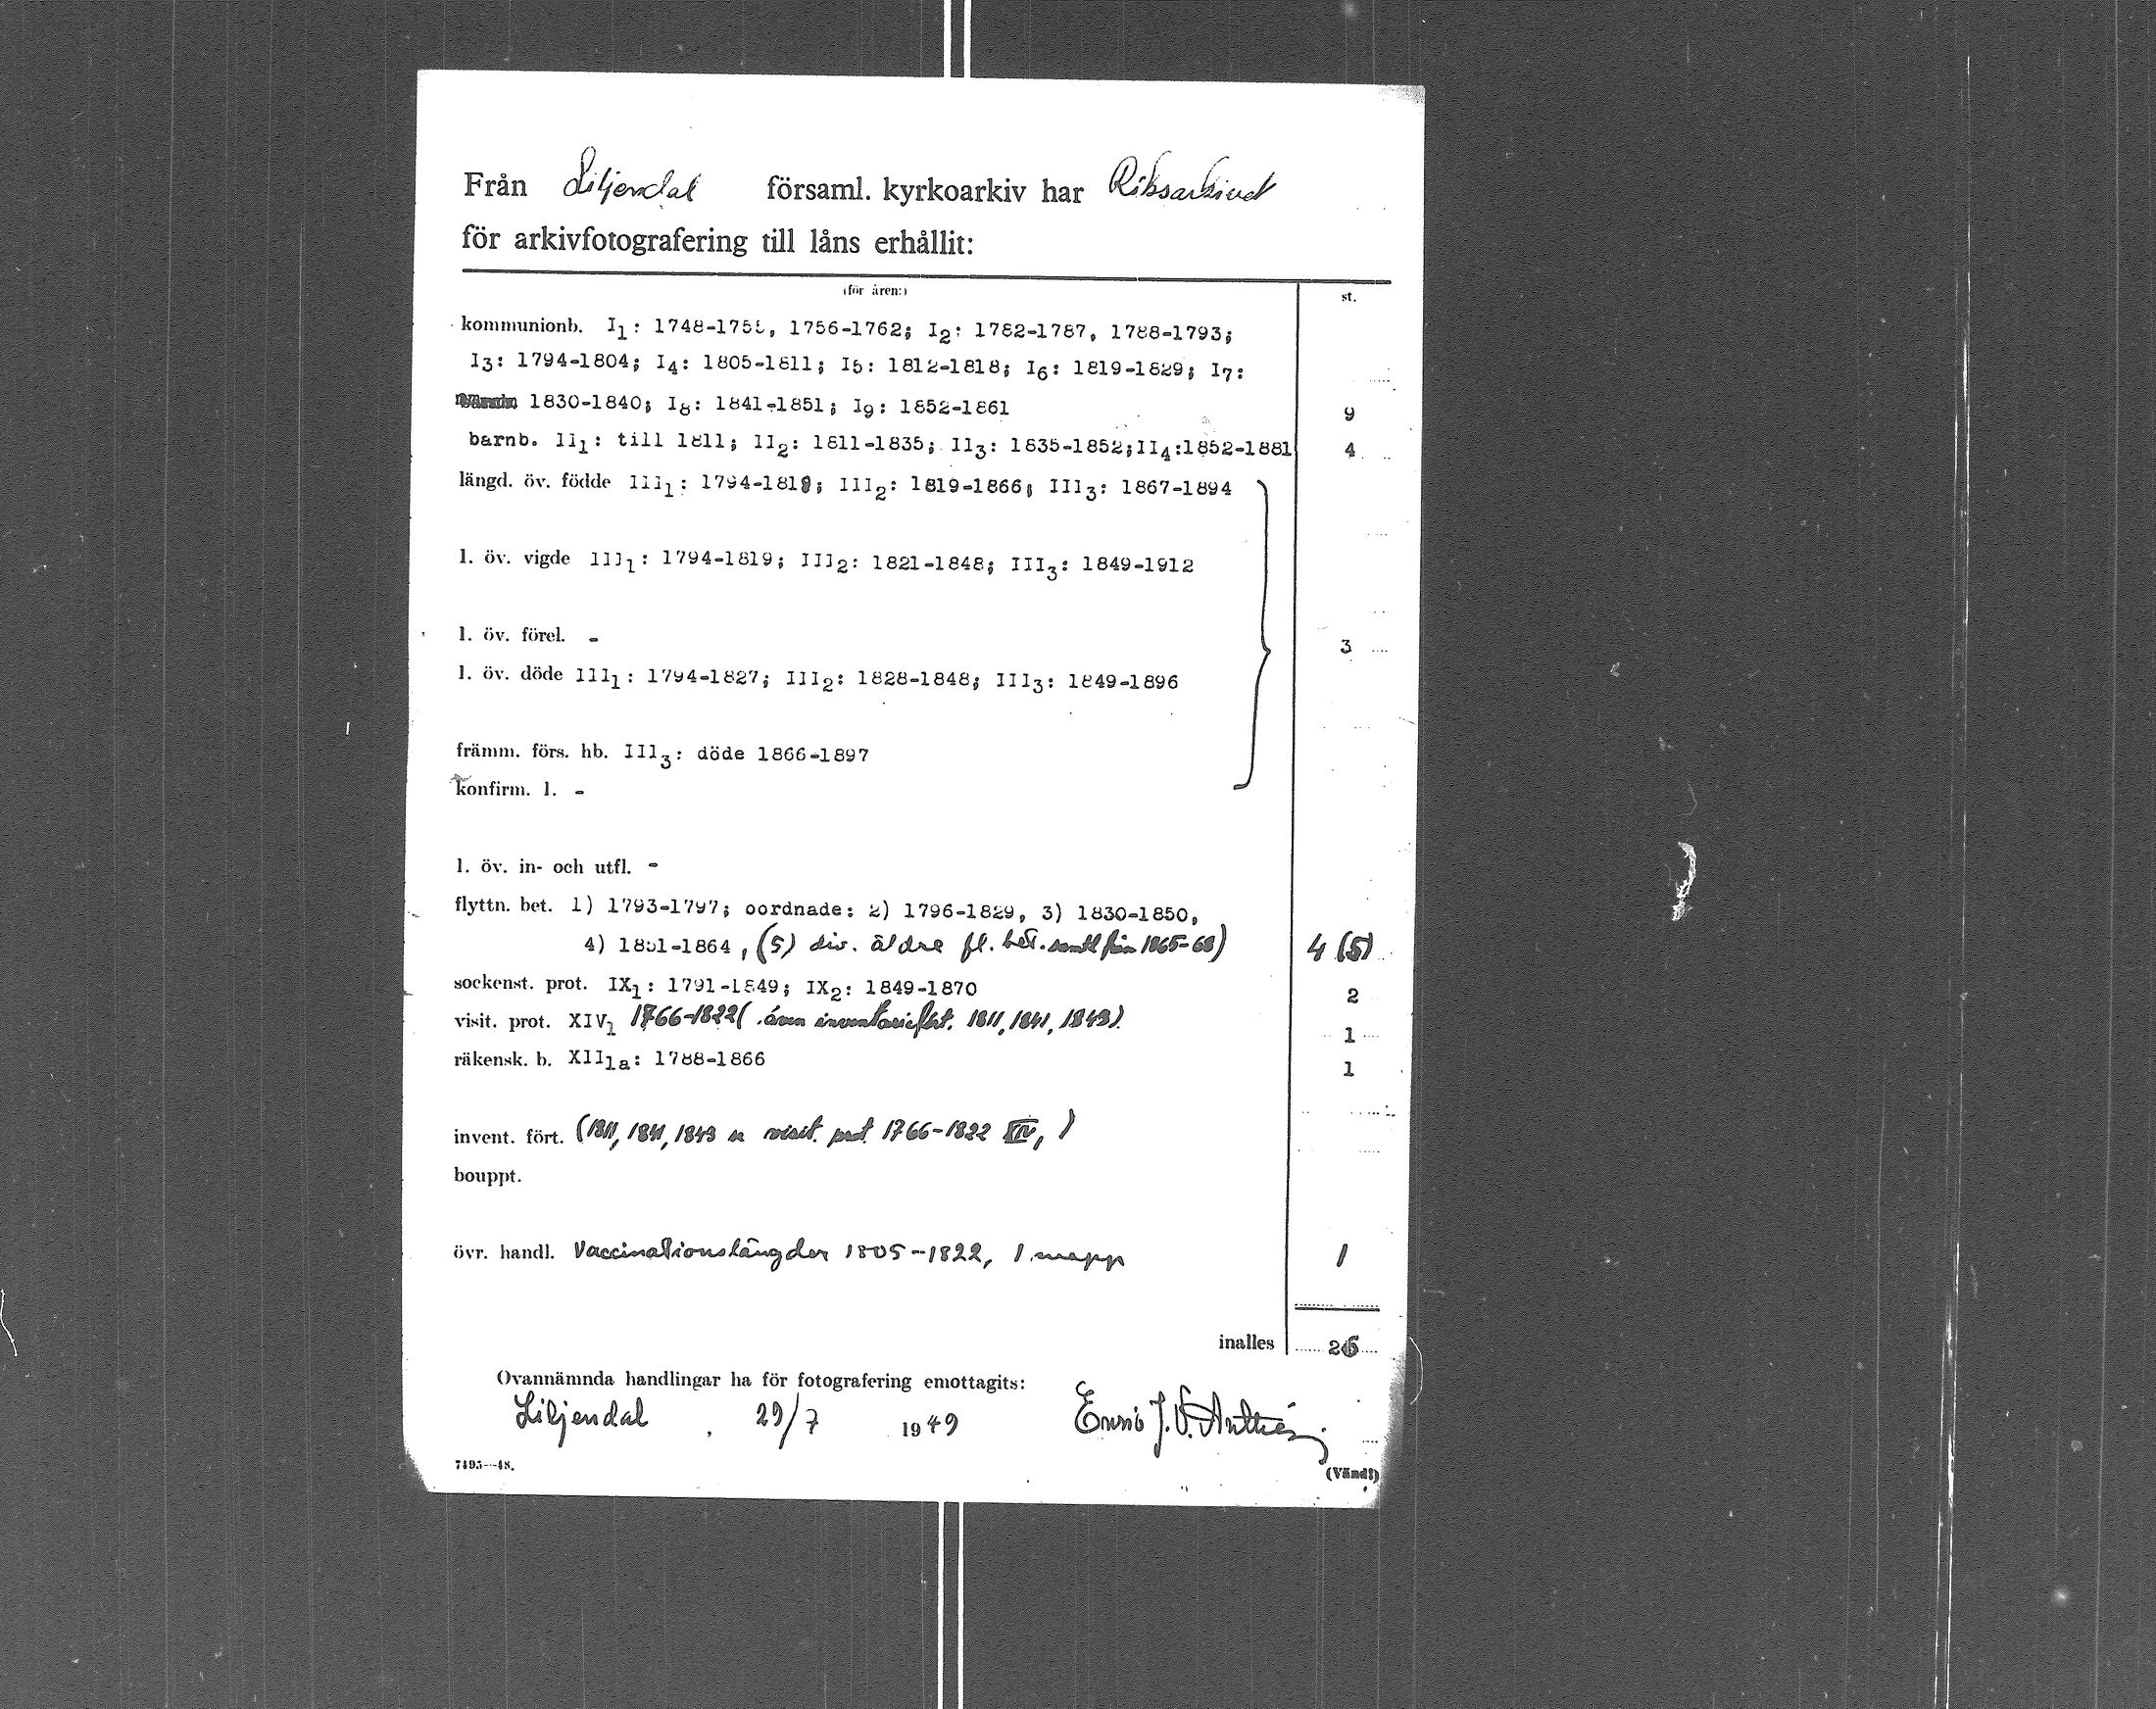 Från Liljendal församl. kyrkoarkiv har Riksarkivet
för arkivfotografering till låns erhållit:
(för åren:) st.
kommunionb. I1: 1748-1755, 1756-1762; I2: 1782-1787, 1788-1793;
I3: 1794-1804; I4: 1805-1811; I5: 1812-1818; I6: 1819-1829; I7:
1830-1840; I8: 1841-1851; I9: 1852-1861 9
barnb. II1: till 1811; II2: 1811-1835; II3: 1835-1852;II4:1852-1881 4
längd. öv. födde III1: 1794-1819; III2: 1819-1866; III3: 1867-1894
l. öv. vigde III1: 1794-1819; III2: 1821-1848; III3: 1849-1912
l. öv. förel. - 3
l. öv. döde III1: 1794-1827; III2: 1828-1848; III3: 1849-1896
främm. förs. hb. III3: döde 1866-1897
konfirm. l. -
l. öv. in- och utfl. -
flyttn. bet. 1) 1793-1797; oordnade: 2) 1796-1829, 3) 1830-1850,
4) 1851-1864, (5) div. äldre fl. bet. samtl från 1865-68) 4 (5)
sockenst. prot. IX1: 1791-1849; IX2: 1849-1870 2
visit. prot. XIV1 1766-1822 (även inventarieför. 1811, 1841, 1843) 1
räkensk. b. XIII1a: 1788-1866 1
invent. fört. (1811, 1841, 1843 se visit. prot 1766-1822 XIV1)
bouppt.
övr. handl. Vaccinationslängder 1805-1822, 1 mapp 1
inalles 26
Ovannämnda handlingar ha för fotografering emottagits:
Liljendal, 29/7 1949 J. V.
7495—48. (Vänd!)